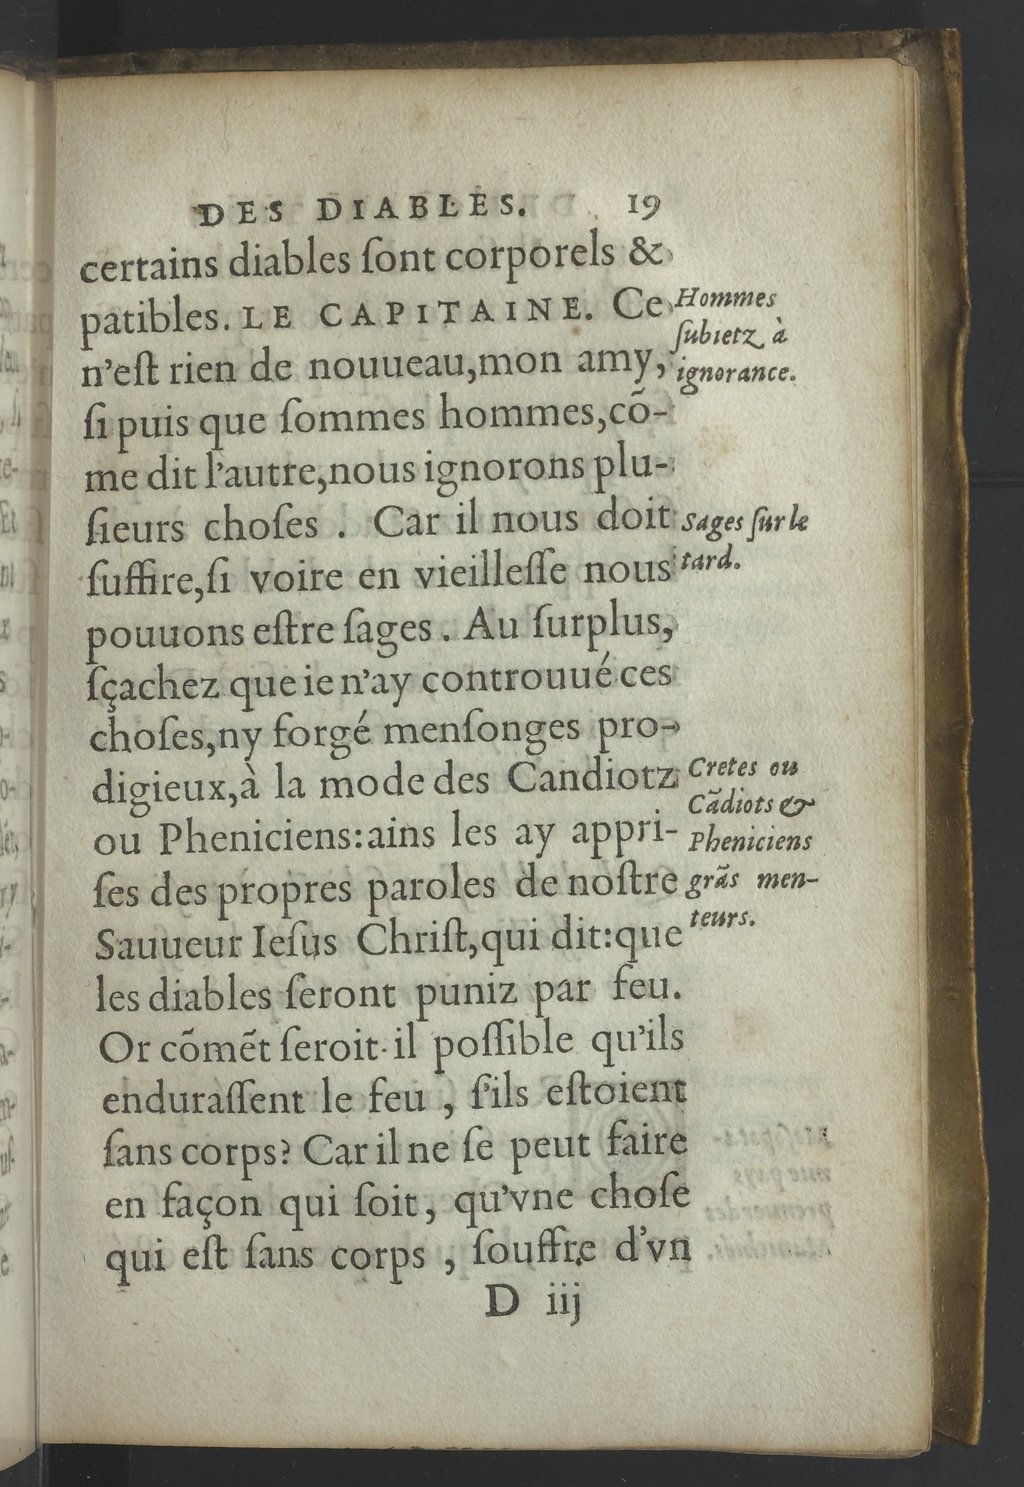 DES DIABLES. 19
certains diables ſont corporels &
patibles. LE CAPITAINE. Ce
n'eſt rien de nouueau,mon amy,
ſi puis que ſommes hommes,cõ-
me dit l'autre,nous ignorons plu-
ſieurs choſes . Car il nous doit
ſuffire,ſi voire en vieilleſſe nous
pouuons eſtre ſages . Au ſurplus,
ſçachez que ie n'ay controuué ces
choſes,ny forgé menſonges pro-
digieux,à la mode des Candiotz
ou Pheniciens:ains les ay appri-
ſes des propres paroles de noſtre
Sauueur Ieſus Chriſt,qui dit:que
les diables ſeront puniz par feu.
Or cõmẽt ſeroit-il poſſible qu'ils
enduraſſent le feu , ſ'ils eſtoient
ſans corps? Car il ne ſe peut faire
en façon qui ſoit, qu'vne choſe
qui eſt ſans corps , ſouffre d'vn
D iij
Hommes
ſubietz à
ignorance.
Sages ſur le
tard.
Cretes ou
Cãdiots &
Pheniciens
grãs men-
teurs.